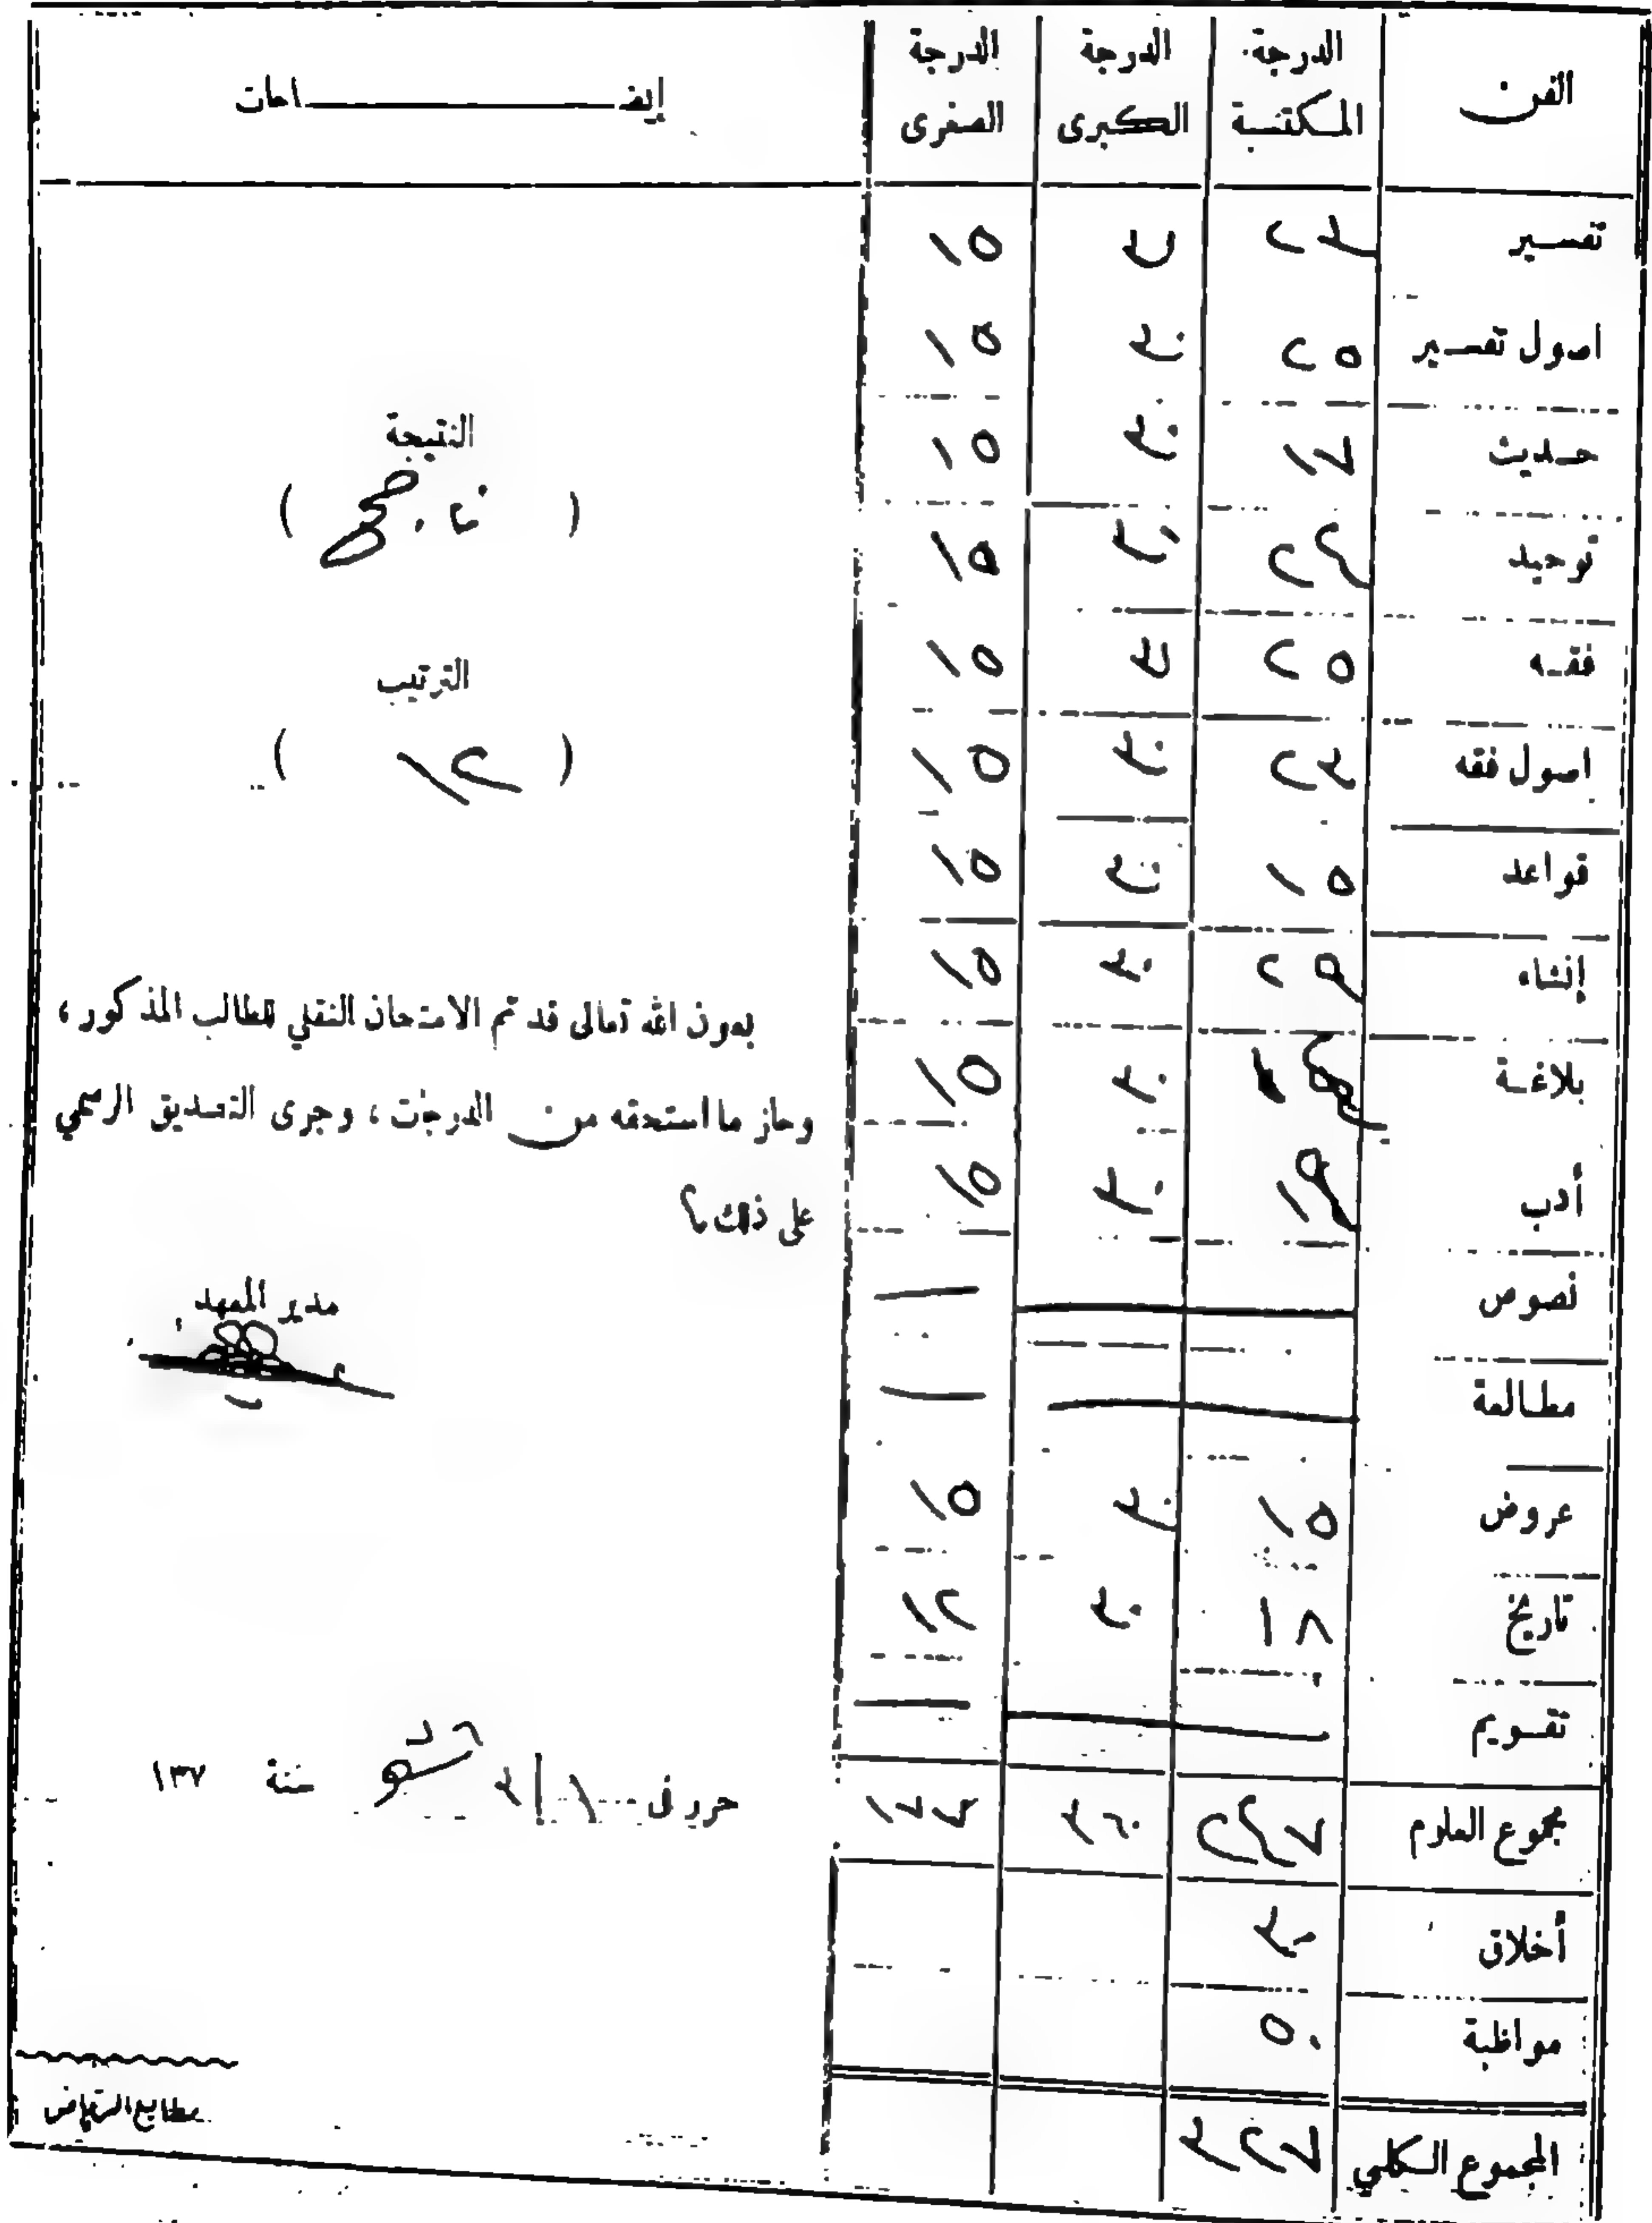 الفن الدرجة المكتسبة الدرجة الكبرى الدرجة الصغرى إيضـــــاحات
تفسير ٢٣ ٣٠ ١٥
اصول تفسير ٢٥ ٣٠ ١٥
حديث ١٧ ٣٠ ١٥
توحيد ٢٤ ٣٠ ١٥
فقه ٢٥ ٣٠ ١٥
اصول فقه ٢٣ ٣٠ ١٥
قواعد ١٥ ٣٠ ١٥
إنشاء ٣٠ ١٥
بلاغة ٣٠ ١٥
أدب ٣٠ ١٥
نصوص
مطالعة
عروض ١٥ ٣٠ ١٥
تاريخ ١٨ ٣٠ ١٢
تقويم
مجموع العلوم ٢٤٧ ٣٦٠ ١٧٧
أخلاق ٣٠
مواظبة ٥٠
المجموع الكلي ٣٢٧
النتيجة
( ناجح )
الترتيب
( ١٢ )
بعون الله تعالى قد تم الامتحان النقلي للطالب المذكور،
وحاز ما استحقه من الدرجات، وجرى التصديق الرسمي
على ذلك
مدير المعهد
حرر في سنة ١٣٧
مطابع الرياض